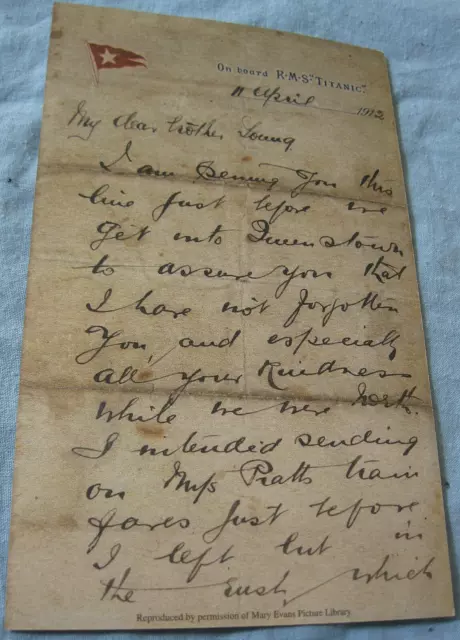 On board R·M·S "TITANIC".
11 April 1912
My dear brother Young
I am penning you this
line just before we
get into Queenstown
to assure you that
I have not forgotten
you and especially
all your kindness
while we were North.
I intended sending
on Miss Pratts train
fares just before
I left but in
the rush, which
Reproduced by permission of Mary Evans Picture Library